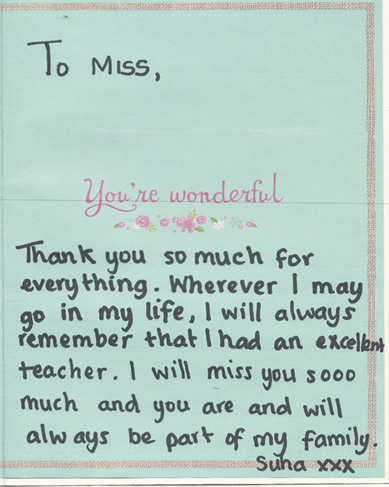 To MISS,
You're wonderful
Thank you so much for
everything. Wherever I may
go in my life, I will always
remember that I had an excellent
teacher. I will miss you sooo
much and you are and will
always be part of my family.
Suha xxx